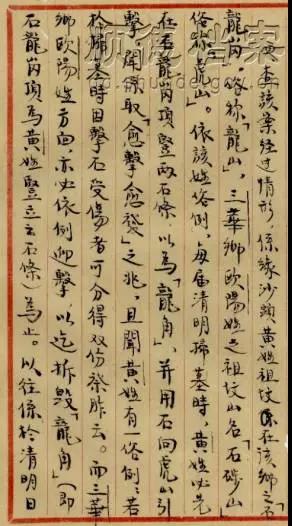 奠查該案經过情形,係緣沙頭黃姓祖坟係在該鄉之「石
龍崗」,略称「龍山」,三華鄉歐陽姓之祖坟山名「石磜山」
俗称「虎山」。依該姓俗例,每届清明掃墓時,黃姓必先
在石龍崗頂竪两石條,以為「龍角」,并用石向虎山引
擊,開係取「愈擊愈發」之兆,且聞黃姓有一俗例:若
於掃墓時因擊石受傷者可分得双份祭胙云。而三華
鄉歐陽姓方面,亦必依例迎擊,以迄拆毁「龍角」(即
石龍崗頂為黃姓竪立之石條)為止。以往係於清明日